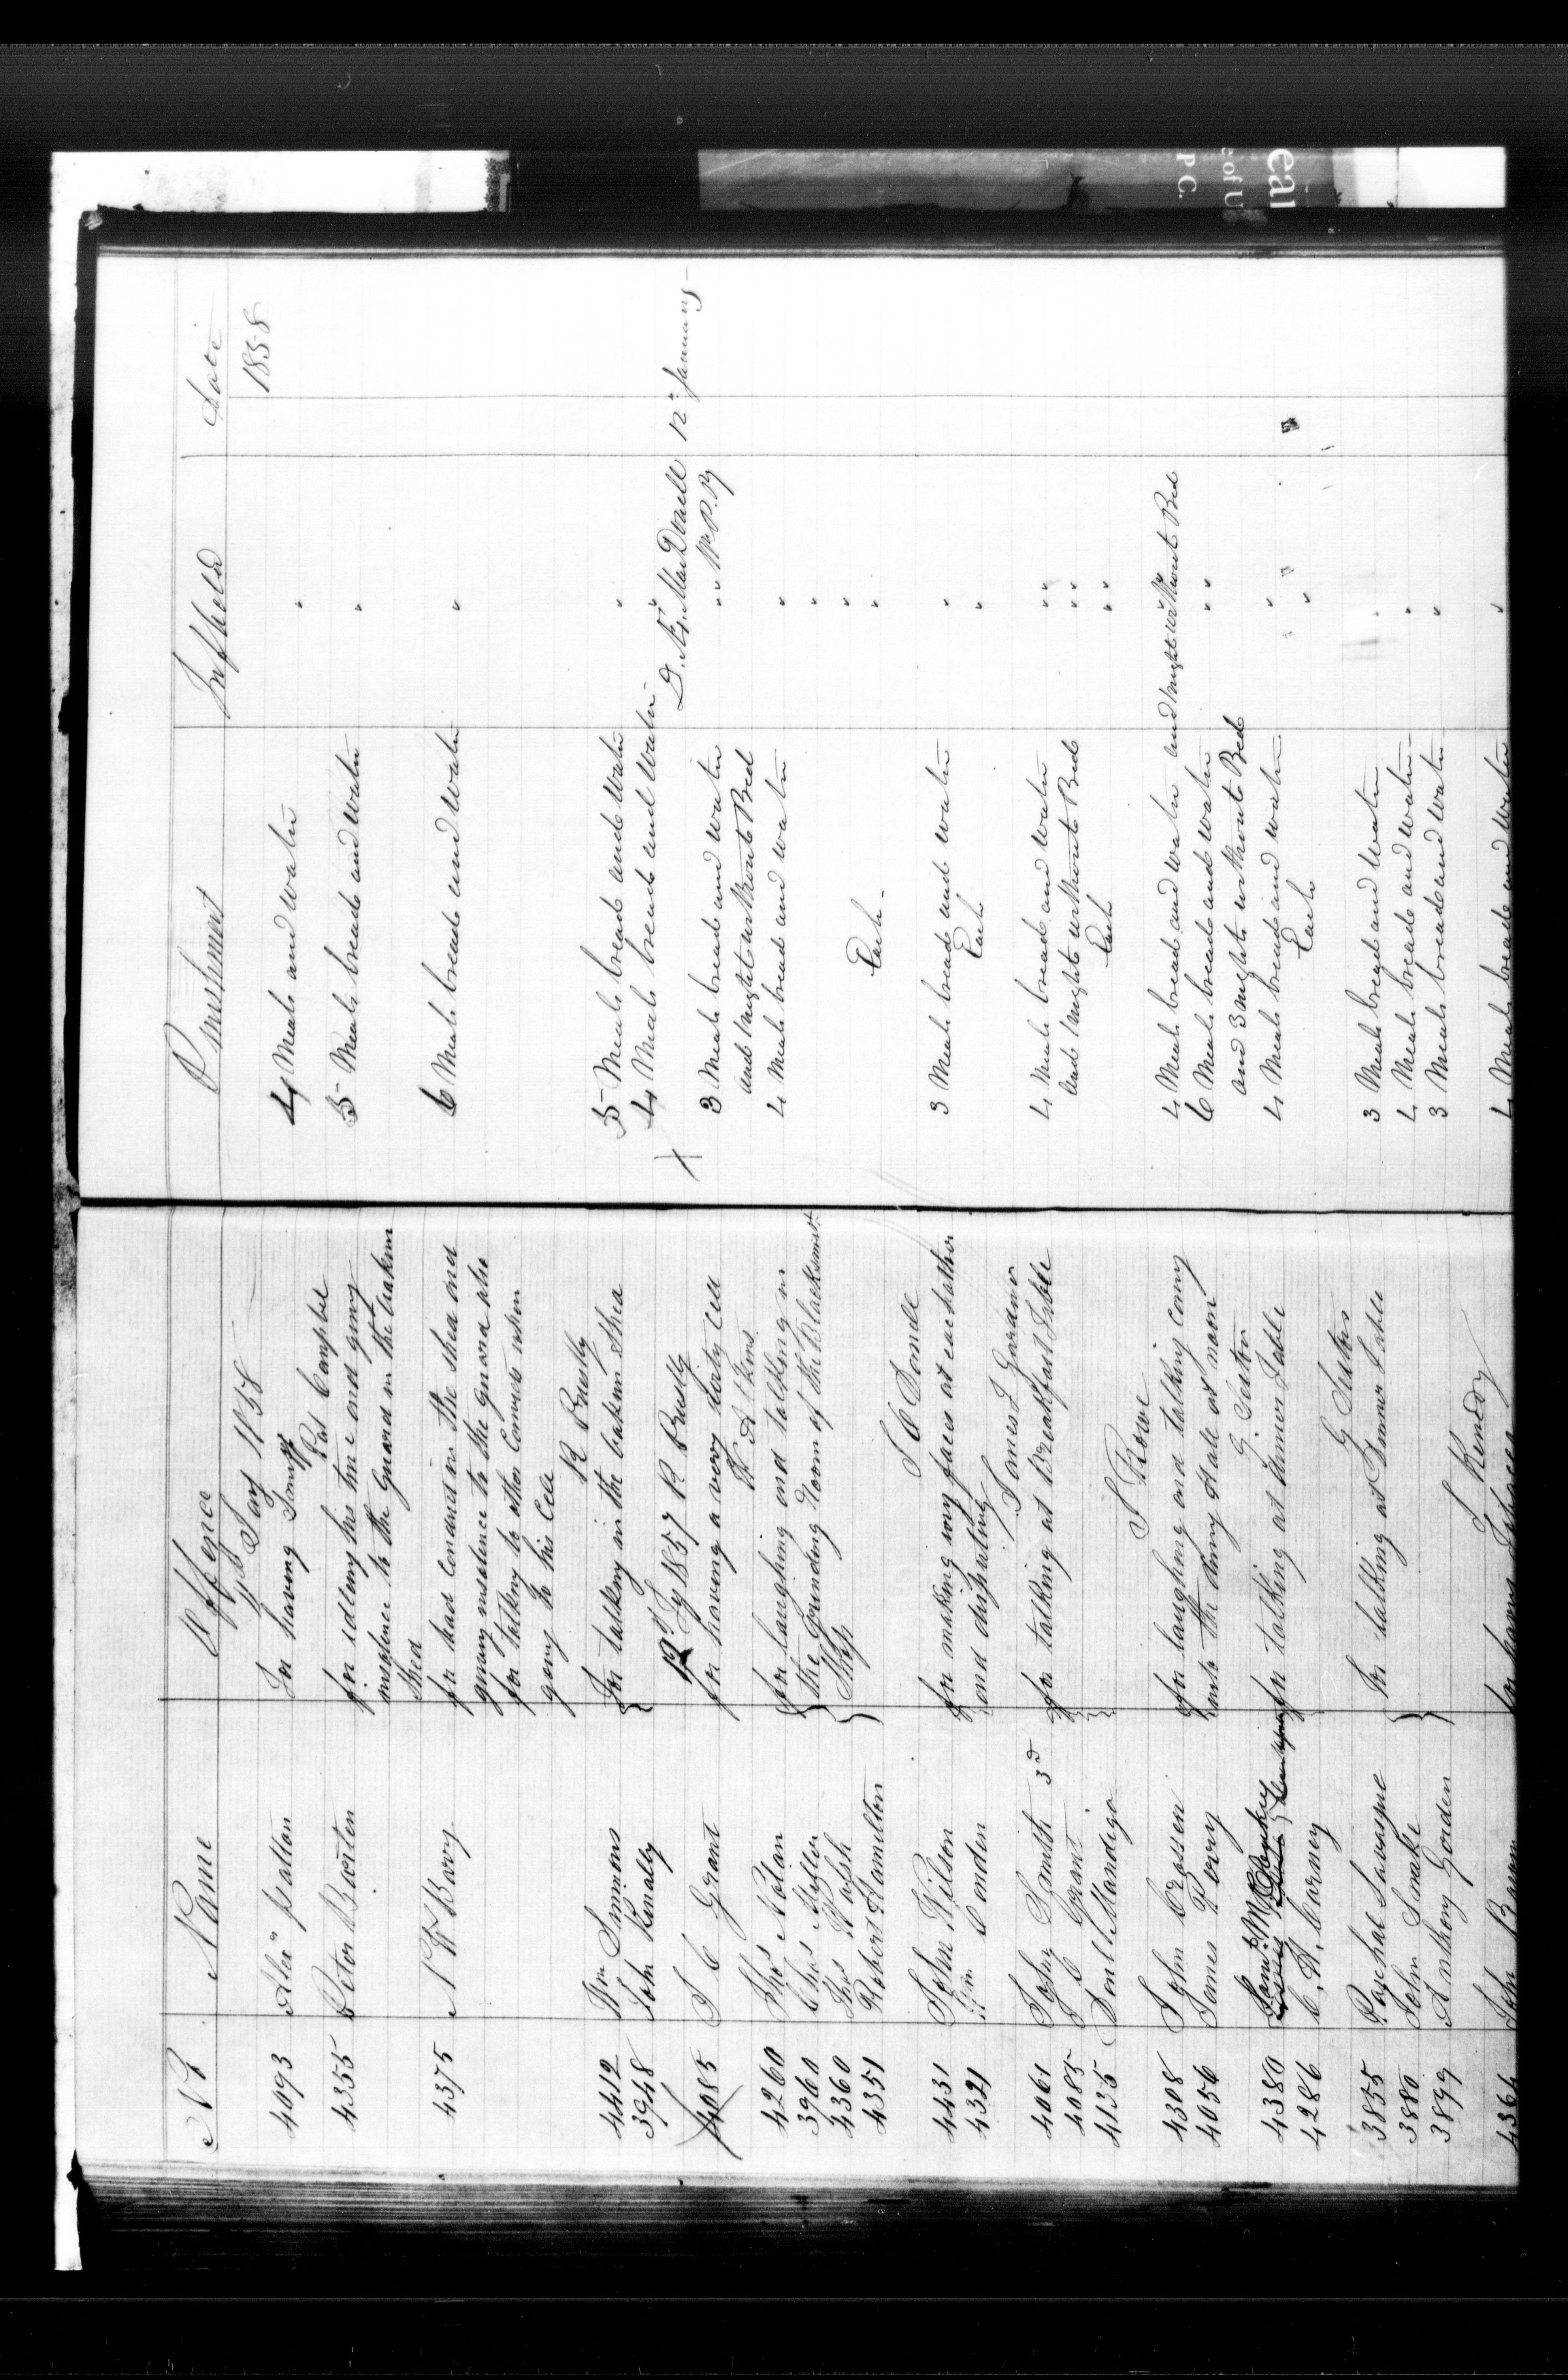 No Name Offence Punishment Inflicted Date
11th Jany 1858 1858
4093 Alexr Patton For having Snuff 4 Meals and Water "
Pat Campbel
4355 Peter Barten for idleing his time and giving 5 Meals bread and Water "
insolence to the Guard in the
Shed
4375 N W Barry for bad Conduct in the Shed and 6 Meals bread and Water "
giving insolence to the Guard also
for talking to other Convicts when
going to his Cell
R Brielly
4412 Wm Simmons for talking in the Shed 5 Meals bread and Water "
3948 John Kenally 4 Meals bread and Water "
12th Jy 1857 R Brielly D. Æ. MacDonell 12th January
4085 J C Grant for having a very dirty Cell 3 Meals bread and Water " " W.P.
W Atkins and 1 night without Bed
4260 Thos Nolan for laughing and talking in 4 Meals bread and water "
3960 Chas Miller the Grinding Room of the Blacksmith "
4360 Thos Walsh Shop "
4351 Robert Hamilton Each "
J C
4431 John Wilson for making wry faces at each other 3 Meals bread and water "
4321 Wm Conden and disputing Each "
James J Gardner
4061 John Smith 3d for talking at Breakfast Table 4 Meals bread and Water " "
4085 J C Grant and 1 night without Bed " "
4135 Mandigo Each " "
J Rowe
4308 John Crossen for laughing and talking Coming 4 Meals bread and Water and 1 night without Bed
4056 James Perry into the dining Hall at noon 6 Meals bread and Water " "
G. Sexton and 3 nights without Bed
4380 for talking at dinner Table 4 Meals bread and water "
4286 C. H. Carney Each "
G Sexton
3855 Paschal Savagne For talking at Dinner Table 3 Meals bread and Water "
3880 John Smake 4 Meals bread and Water "
3899 Anthony Gorden 3 Meals bread and Water "
J Kendry
4364 John for having Tobacco 4 Meals bread and Water "
eal
e of U
P C.